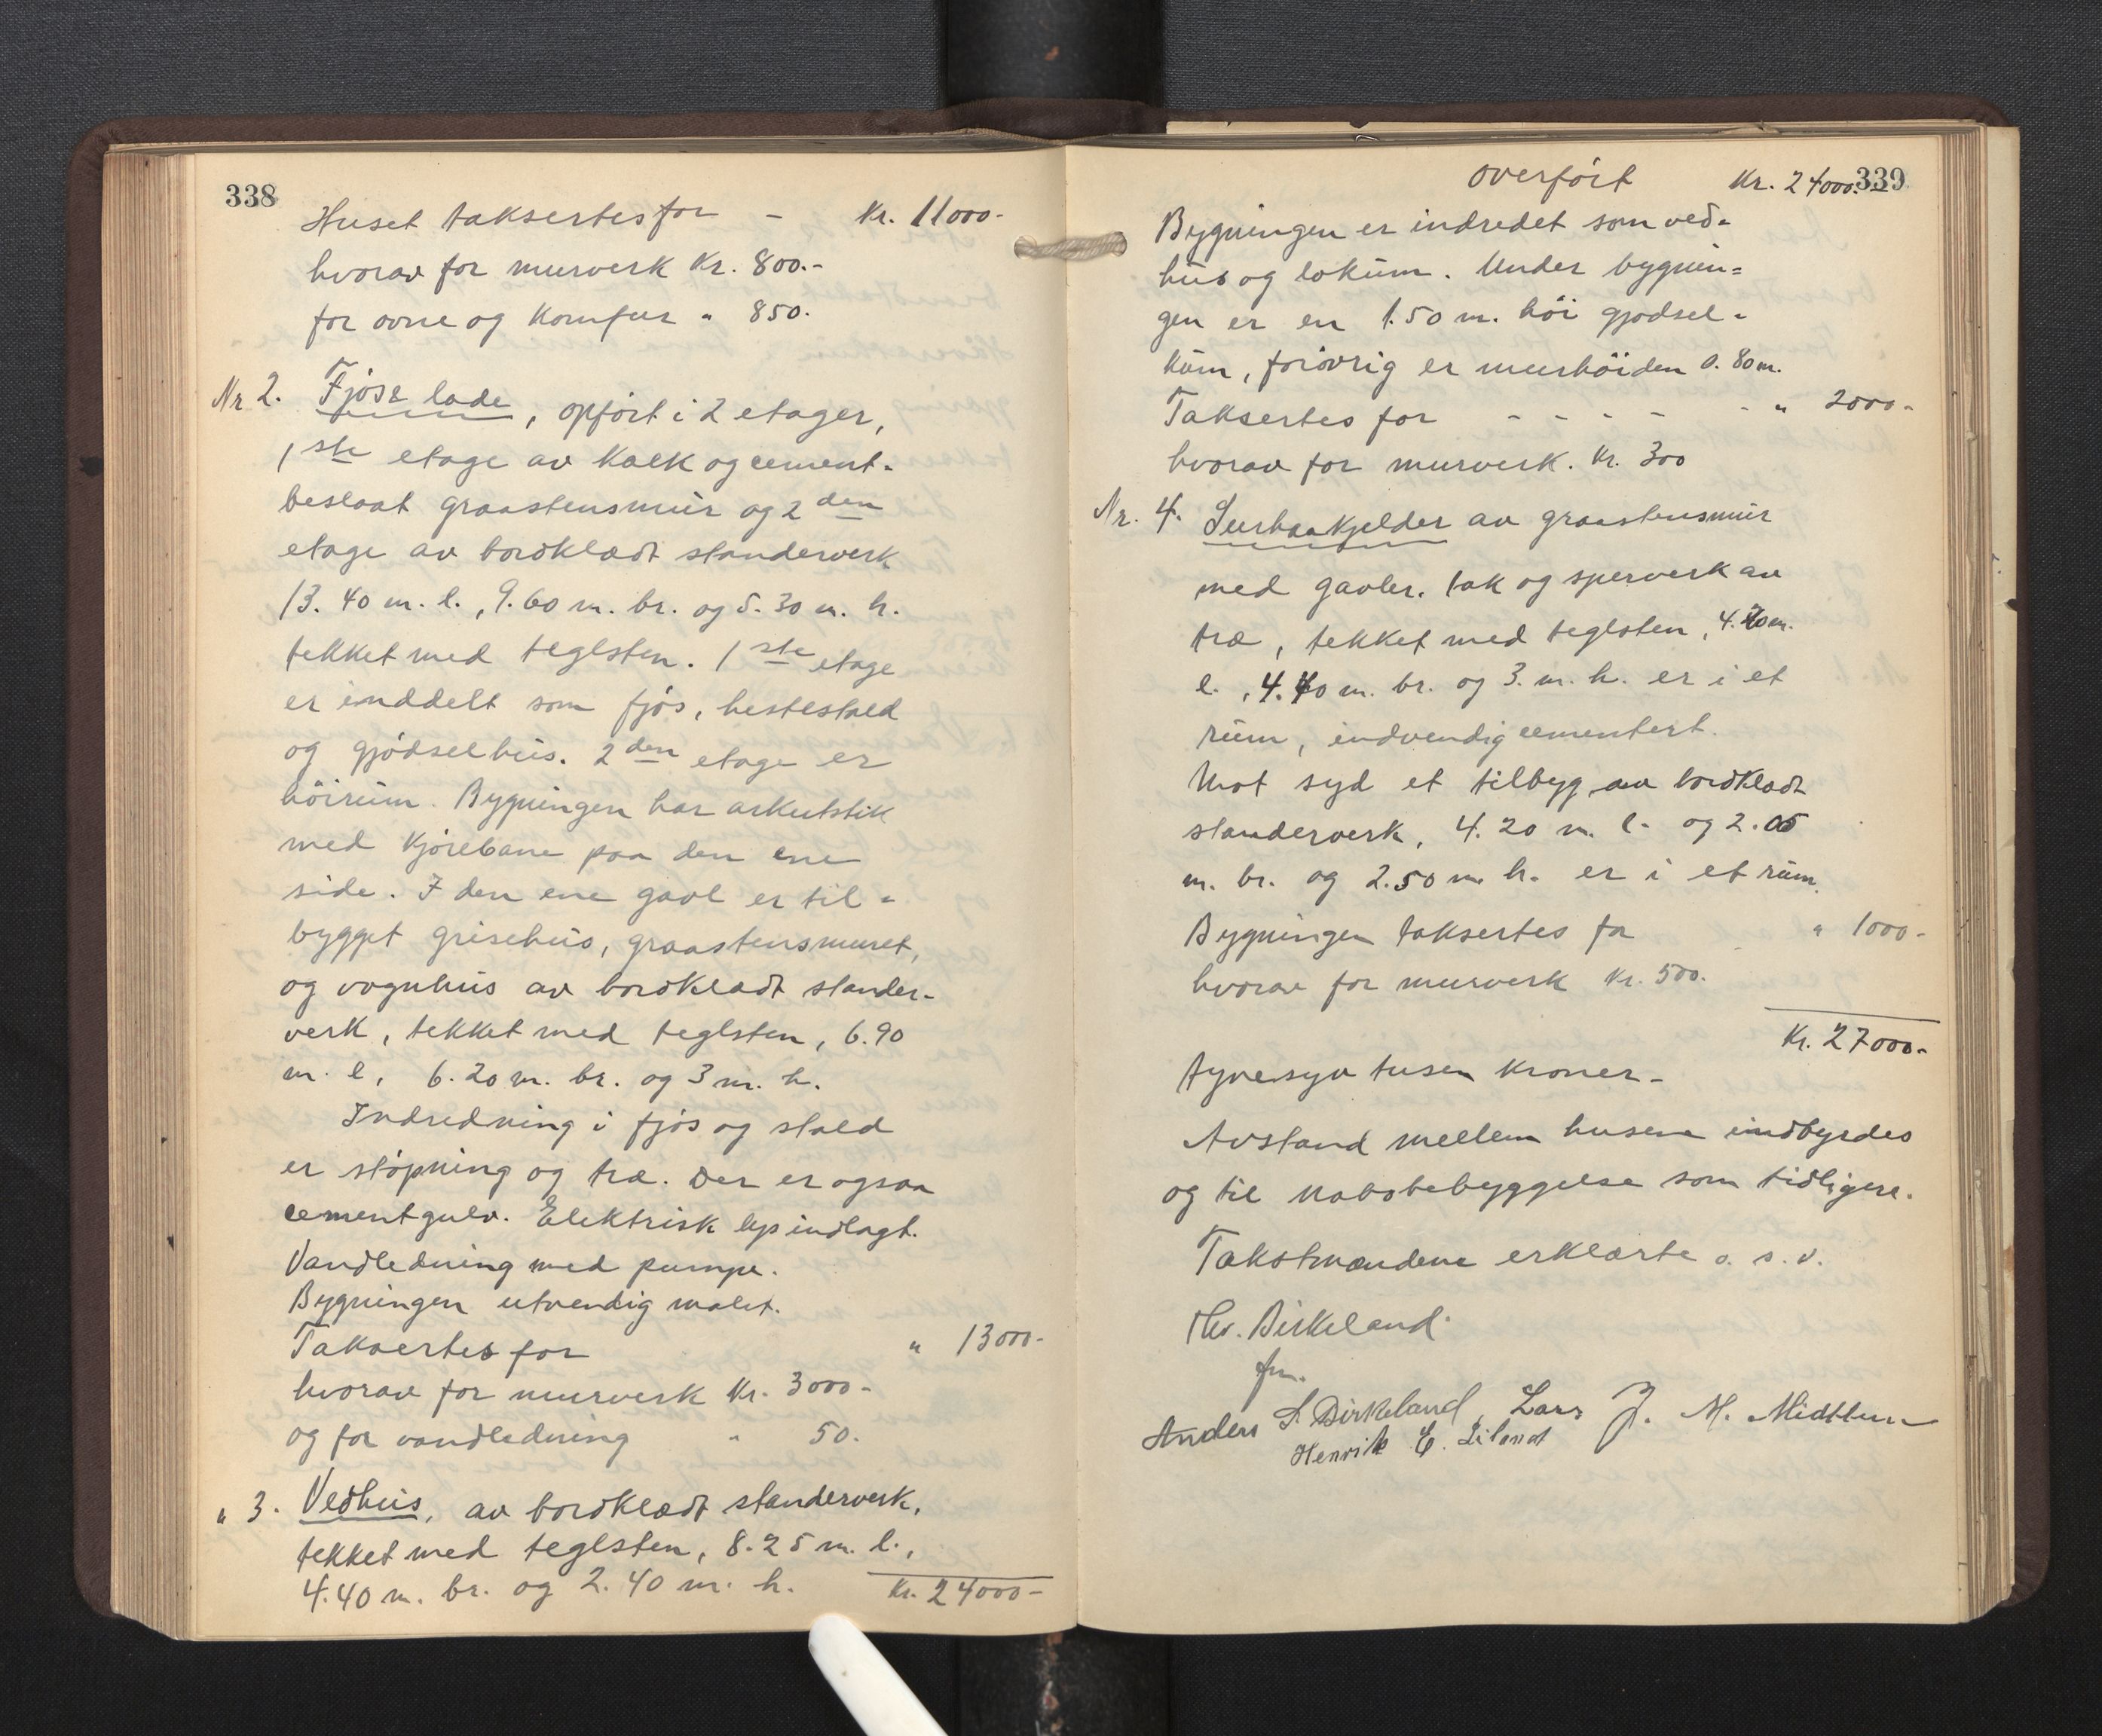 338
Huset taksertes for - Kr. 11000-
hvorav for murverk Kr. 800.-
for ovne og Komfur " 850.
Nr 2. Fjös & lade, opfört i 2 etager,
1 ste etage av Kalk og cement-
beslaat graastensmur og 2 den
etage av bordklædt standerverk
13.40 m. l., 9.60 m. br. og 5.30 m. h.
tekket med teglsten. 1 ste etage
er inddelt som fjös, hestestald
og gjödselhus. 2 den etage er
höirum. Bygningen har arkutstik
med Kjörebane paa den ene
side. I den ene gavl er til-
bygget grisehus, graastensmuret,
og vognhus av bordklædt stander-
verk, tekket med teglsten, 6.90
m. l, 6.20 m. br. og 3 m. h.
Indredning i fjös og stald
er stöpning og træ. Der er ogsaa
cementgulv. Elektrisk lys indlagt.
Vandledning med pumpe.
Bygningen utvendig malet.
Taksertes for " 13000-
hvorav for murverk Kr. 3000-
og for vandledning " 50.
" 3. Vedhus, av bordklædt standerverk,
tekket med teglsten, 8.25 m. l.,
4.40 m. br. og 2.40 m. h. Kr. 24000-
overfört Kr. 24000.- 339
Bygningen er indredet som ved-
hus og lokum. Under bygnin=
gen er en 1.50 m. höi gjödsel-
kum, forövrig er murhöiden 0.80 m.
Taksertes for - - - - - " 2000-
hvorav for murverk. Kr. 300
Nr. 4. Surhaakjelder av graastensmur
med gavler. tak og sperverk av
træ, tekket med teglsten, 4.70 m.
l., 4.40 m. br. og 3. m. h. er i et
rum, indvendig cementert.
Mot syd et tilbygg av bordklædt
standerverk, 4.20 m. l. og 2.05
m. br. og 2.50 m. h. er i et rum.
Bygningen taksertes for - " 1000-
hvorav for murverk Kr. 500.
Kr. 27000-
tyvesyv tusen Kroner-
Avstand mellem husene indbyrdes
og til nabobebyggelse som tidligere.
Takstmændene erklærte o. s. v.
Ths. Birkeland
fm.
Anders S. Birkeland, Lars J. M. Midttun
Henrik E. Liland